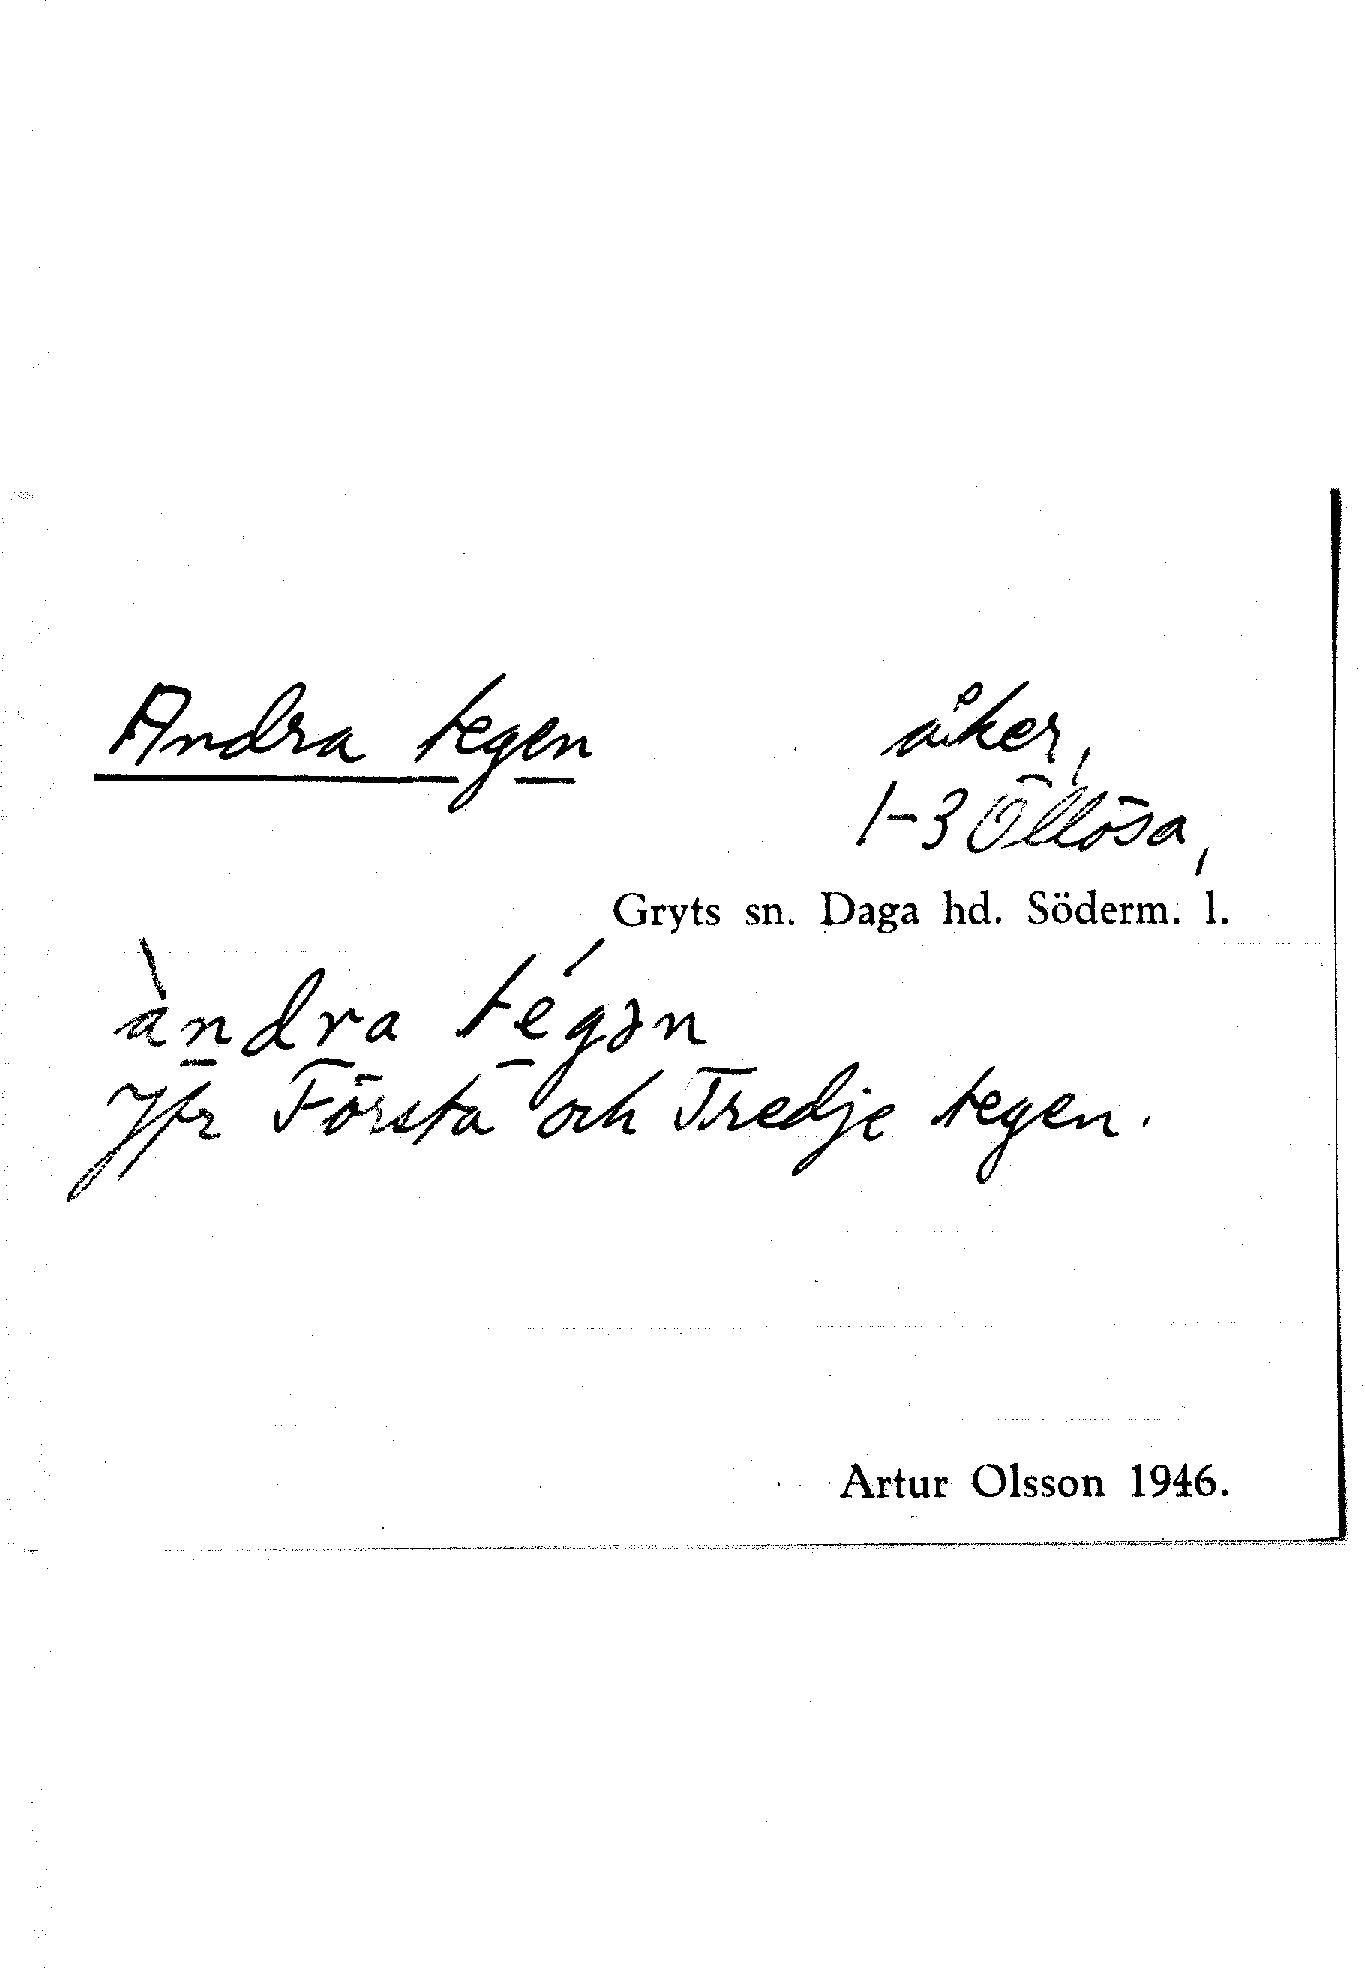 Andra tegen
åker,
1-3 Öllösa,
Gryts sn. Daga hd. Söderm. l.
àndra tégən
Jfr Första och Tredje tegen.
Artur Olsson 1946.